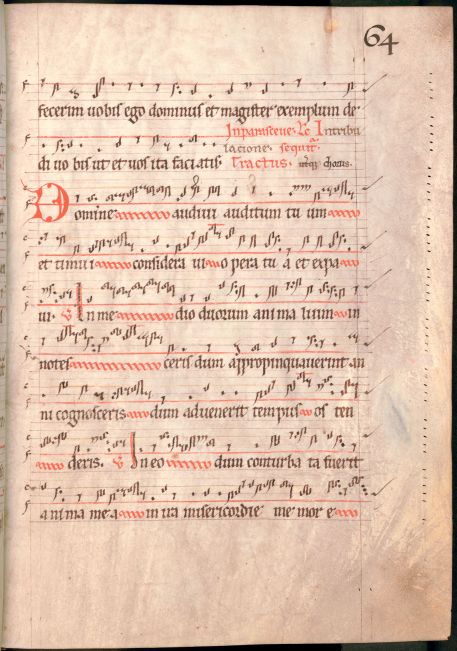 64
fecerim uobis ego dominus et magister exemplum de
In parasceue. Lc In tribu
latione. sequit.
di uo bis ut et uos ita faciatis. Tractus. chorus.
Domine audiui auditum tu um
et timui considera ui o pera tu a et expa
ui. In me dio duorum ani ma lium in
notes ceris dum appropinquauerint an
ni cognosceris dum aduenerit tempus os ten
deris. In eo dum conturba ta fuerit
anima me a in ira misericordie me mor e